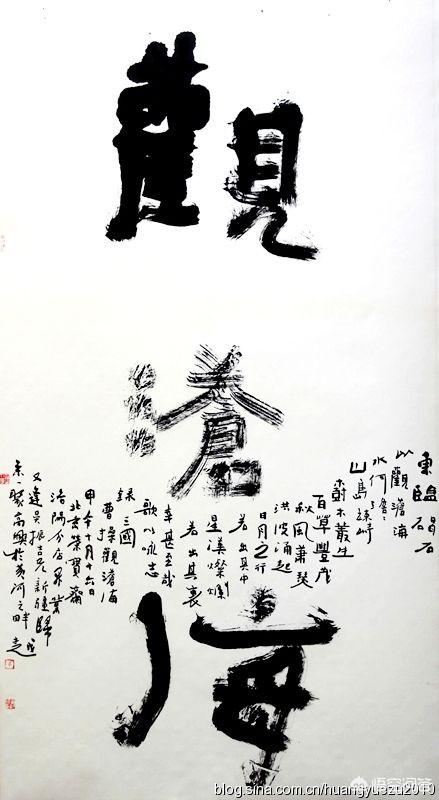 觀滄海
東臨碣石
以觀滄海
水何澹澹
山島竦峙
樹木叢生
百草豐茂
秋風蕭瑟
洪波涌起
日月之行
若出其中
星漢燦爛
若出其裏
幸甚至哉
歌以咏志
錄三國
曹操觀滄海
甲午十月十六日
北京榮寶齋
洛陽分店開業
又逢吴振吉兄新疆歸
来一聚高興於黄河之畔
悟空问答
blog.sina.com.cn/huangyuezu2010